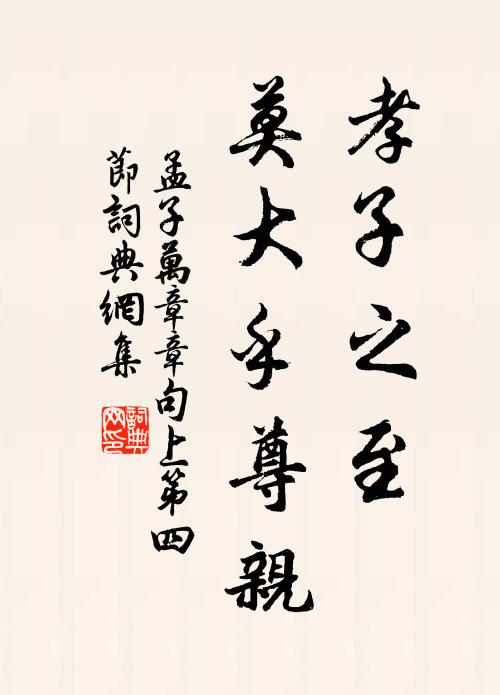 孝子之至
莫大乎尊親
孟子萬章章句上第四
節詞典網集
詞典网印